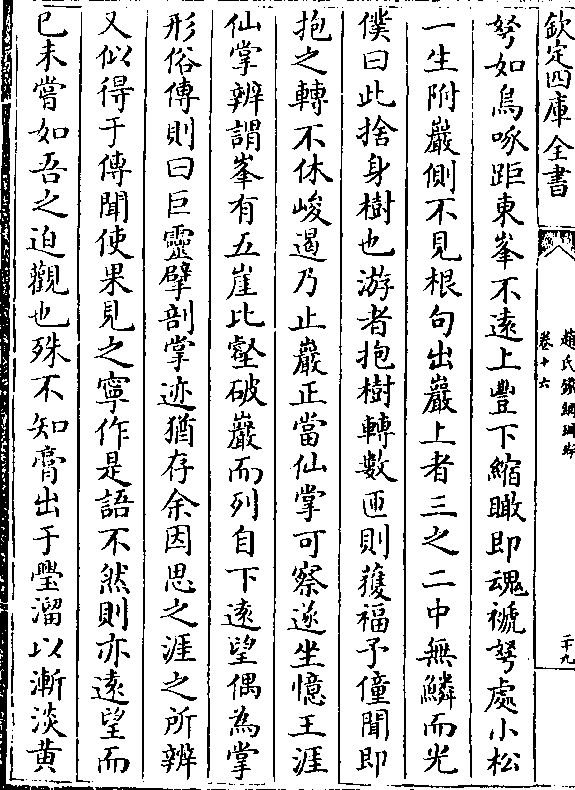 欽定四庫全書
趙氏鐵網珊瑚
卷十六
二十九
弩如鳥啄距東峯不遠上豐下縮瞰即魂褫弩處小松
一生附巖側不見根句出巖上者三之二中無鱗而光
僕曰此捨身樹也游者抱樹轉數匝則獲福予僮聞即
抱之轉不休峻遏乃止巖正當仙掌可察遂坐憶王涯
仙掌辨謂峯有五崖比壑破巖而列自下遠望偶為掌
形俗傳則曰巨靈擘剖掌迹猶存余因思之涯之所辨
又似得于傳聞使果見之寧作是語不然則亦遠望而
已未嘗如吾之迫觀也殊不知膏出于璺溜以漸淡黄